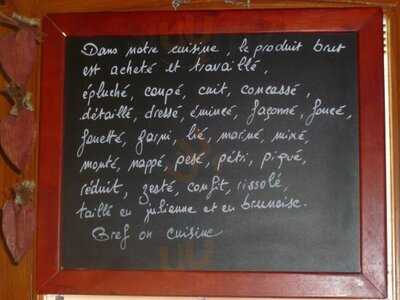 Dans notre cuisine, le produit brut
est acheté et travaillé,
épluché, coupé, cuit, concassé,
détaillé, dressé, émincé, façonné, foncé,
fouetté, garni, lié, mariné, mixé
monté, nappé, pesé, pétri, piqué,
réduit, zesté, confit, rissolé,
taillé en julienne et en brunoise.
Bref on cuisine